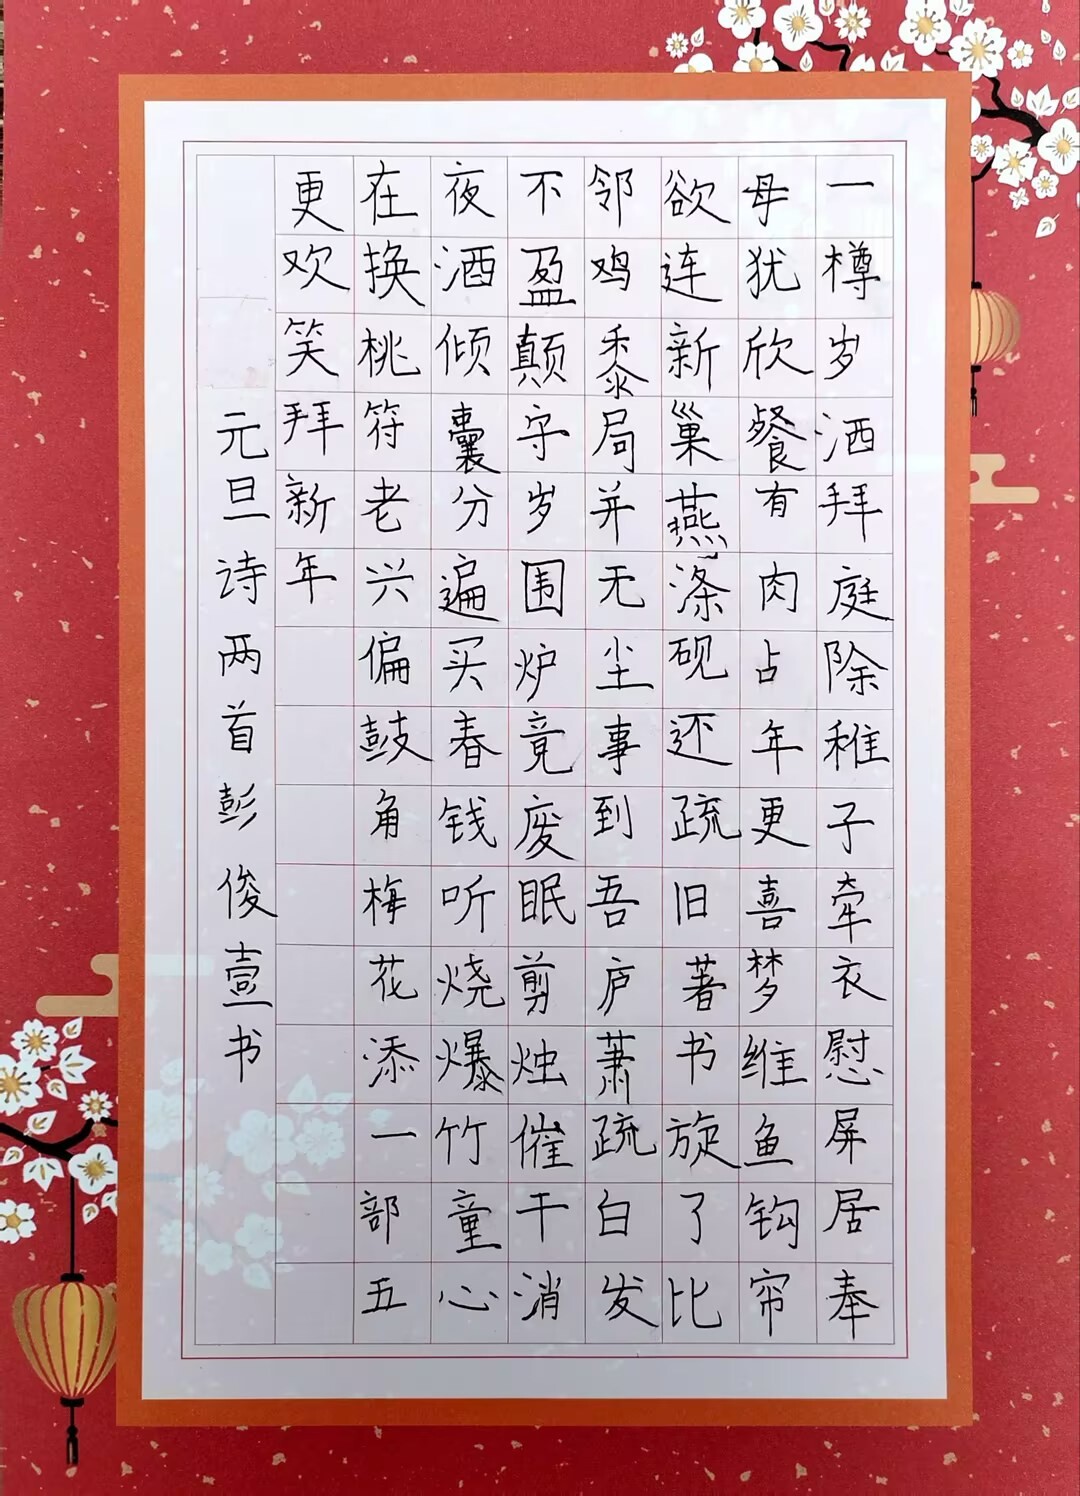 一樽岁洒拜庭除稚子牵衣慰屏居奉
母犹欣餐有肉占年更喜梦维鱼钩帘
欲连新巢燕涤砚还疏旧著书旋了比
邻鸡黍局并无尘事到吾庐萧疏白发
不盈颠守岁围炉竟废眠剪烛催干消
夜酒倾囊分遍买春钱听烧爆竹童心
在换桃符老兴偏鼓角梅花添一部五
更欢笑拜新年
元旦诗两首彭俊壹书